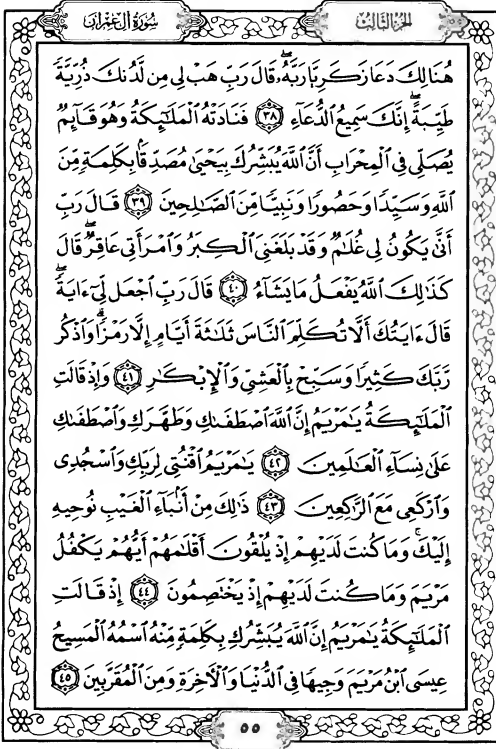 سُورَةُ آلِ عِمْرَان
الجزء الثالث
هُنَالِكَ دَعَا زَكَرِيَّا رَبَّهُۥۖ قَالَ رَبِّ هَبْ لِى مِن لَّدُنكَ ذُرِّيَّةً
طَيِّبَةًۖ إِنَّكَ سَمِيعُ ٱلدُّعَآءِ ٣٨ فَنَادَتْهُ ٱلْمَلَٰٓئِكَةُ وَهُوَ قَآئِمٌ
يُصَلِّى فِى ٱلْمِحْرَابِ أَنَّ ٱللَّهَ يُبَشِّرُكَ بِيَحْيَىٰ مُصَدِّقًۢا بِكَلِمَةٍ مِّنَ
ٱللَّهِ وَسَيِّدًا وَحَصُورًا وَنَبِيًّا مِّنَ ٱلصَّٰلِحِينَ ٣٩ قَالَ رَبِّ
أَنَّىٰ يَكُونُ لِى غُلَٰمٌ وَقَدْ بَلَغَنِىَ ٱلْكِبَرُ وَٱمْرَأَتِى عَاقِرٌۖ قَالَ
كَذَٰلِكَ ٱللَّهُ يَفْعَلُ مَا يَشَآءُ ٤٠ قَالَ رَبِّ ٱجْعَل لِّىٓ ءَايَةًۖ
قَالَ ءَايَتُكَ أَلَّا تُكَلِّمَ ٱلنَّاسَ ثَلَٰثَةَ أَيَّامٍ إِلَّا رَمْزًاۗ وَٱذْكُر
رَّبَّكَ كَثِيرًا وَسَبِّحْ بِٱلْعَشِىِّ وَٱلْإِبْكَٰرِ ٤١ وَإِذْ قَالَتِ
ٱلْمَلَٰٓئِكَةُ يَٰمَرْيَمُ إِنَّ ٱللَّهَ ٱصْطَفَىٰكِ وَطَهَّرَكِ وَٱصْطَفَىٰكِ
عَلَىٰ نِسَآءِ ٱلْعَٰلَمِينَ ٤٢ يَٰمَرْيَمُ ٱقْنُتِى لِرَبِّكِ وَٱسْجُدِى
وَٱرْكَعِى مَعَ ٱلرَّٰكِعِينَ ٤٣ ذَٰلِكَ مِنْ أَنۢبَآءِ ٱلْغَيْبِ نُوحِيهِ
إِلَيْكَۚ وَمَا كُنتَ لَدَيْهِمْ إِذْ يُلْقُونَ أَقْلَٰمَهُمْ أَيُّهُمْ يَكْفُلُ
مَرْيَمَ وَمَا كُنتَ لَدَيْهِمْ إِذْ يَخْتَصِمُونَ ٤٤ إِذْ قَالَتِ
ٱلْمَلَٰٓئِكَةُ يَٰمَرْيَمُ إِنَّ ٱللَّهَ يُبَشِّرُكِ بِكَلِمَةٍ مِّنْهُ ٱسْمُهُ ٱلْمَسِيحُ
عِيسَى ٱبْنُ مَرْيَمَ وَجِيهًا فِى ٱلدُّنْيَا وَٱلْءَاخِرَةِ وَمِنَ ٱلْمُقَرَّبِينَ ٤٥
٥٥